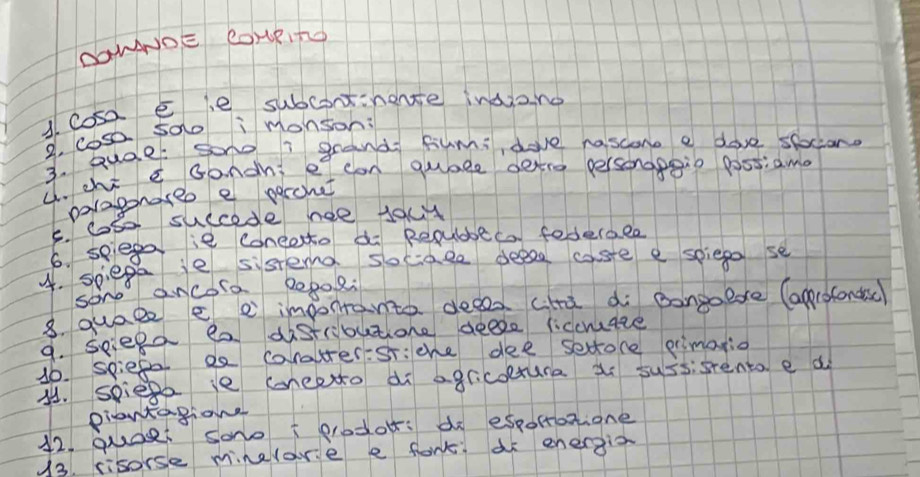 DOMANDE COMPITO
1. cosa è il subcontinente indiano
2. cosa sono i monsoni
3. quali sono i grandi fiumi, dove nascono e dove sfociano
4. chi è Gandhi e con quale altro personaggio possiamo
paragonarlo e perché
5. cosa succede nel 1947
6. spiega il concetto di Repubblica federale
7. spiega il sistema sociale delle caste e spiega se
sono ancora legali
8. quale è l'importanza della città di Bangalore (approfondisci)
9. spiega la distribuzione delle ricchezze
10. spiega le caratteristiche del settore primario
11. spiega il concetto di agricoltura di sussistenza e di
piantagione
12. quali sono i prodotti di esportazione
13. risorse minerarie e fonti di energia